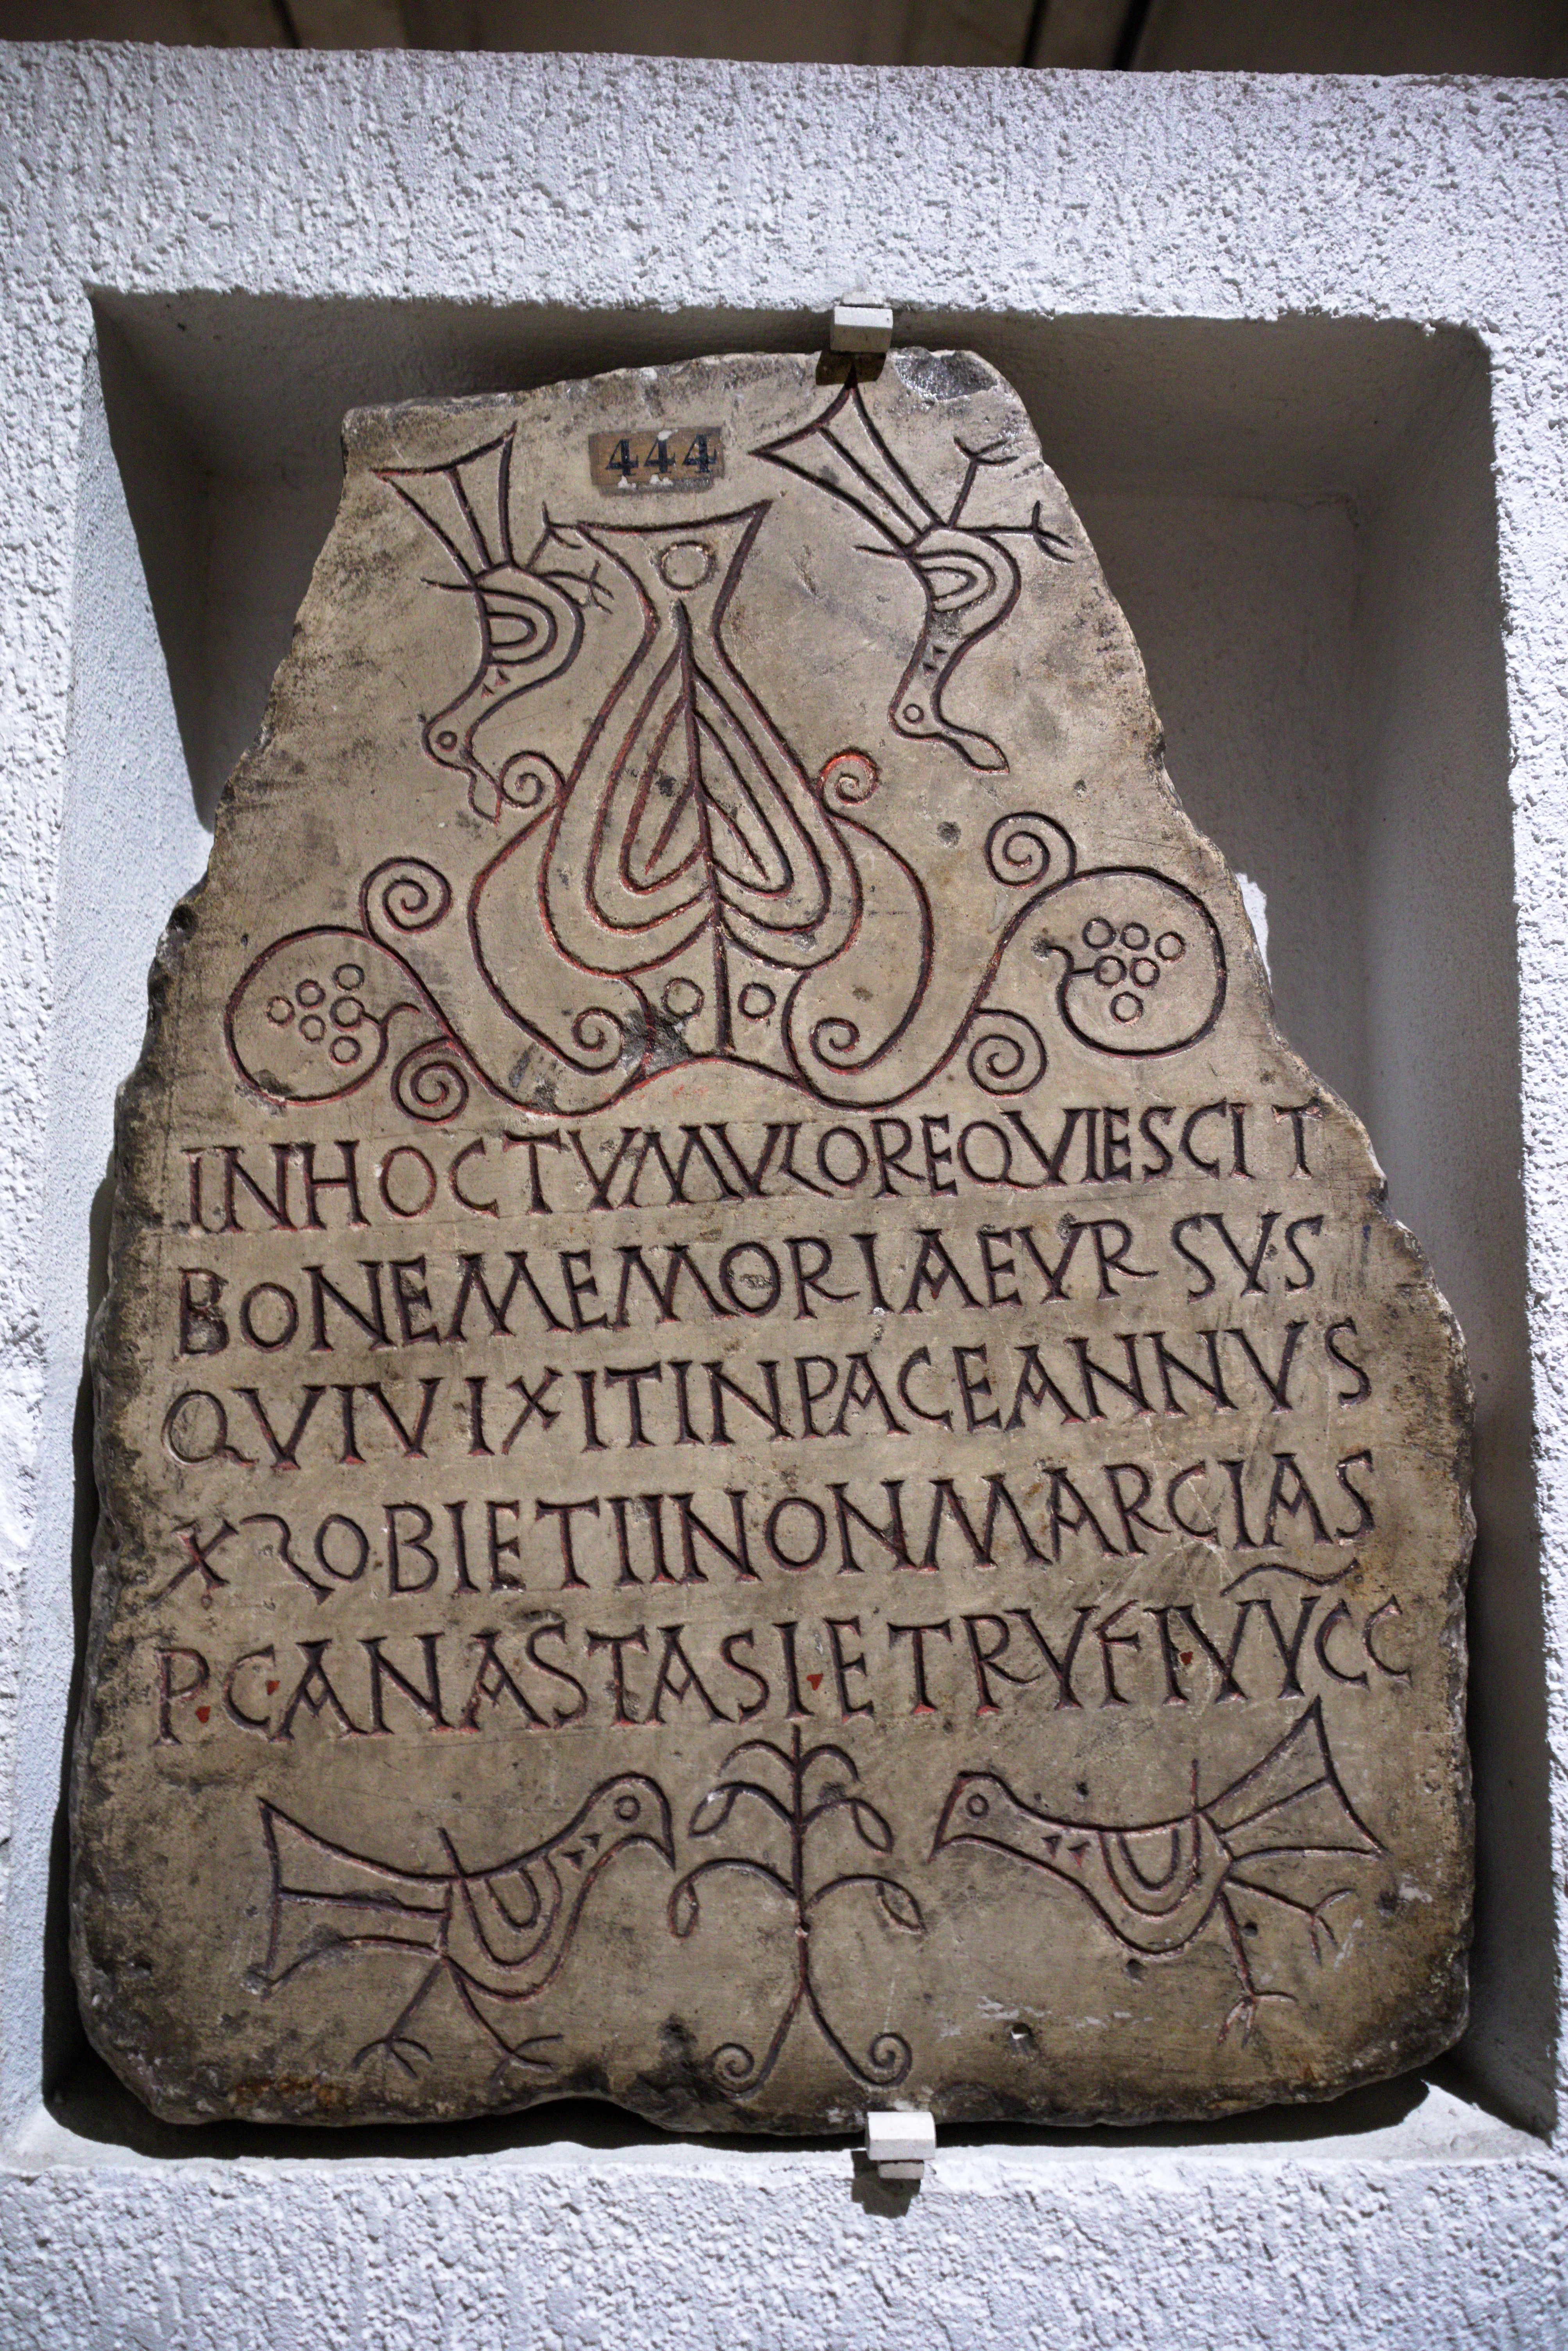 444
INHOCTVMVLOREQVIESCIT
BONEMEMORIAEVRSVS
QVIVIXITINPACEANNVS
XLOBIETIINONMARCIAS
P·C·ANASTASI·ETRVFI·VVCC